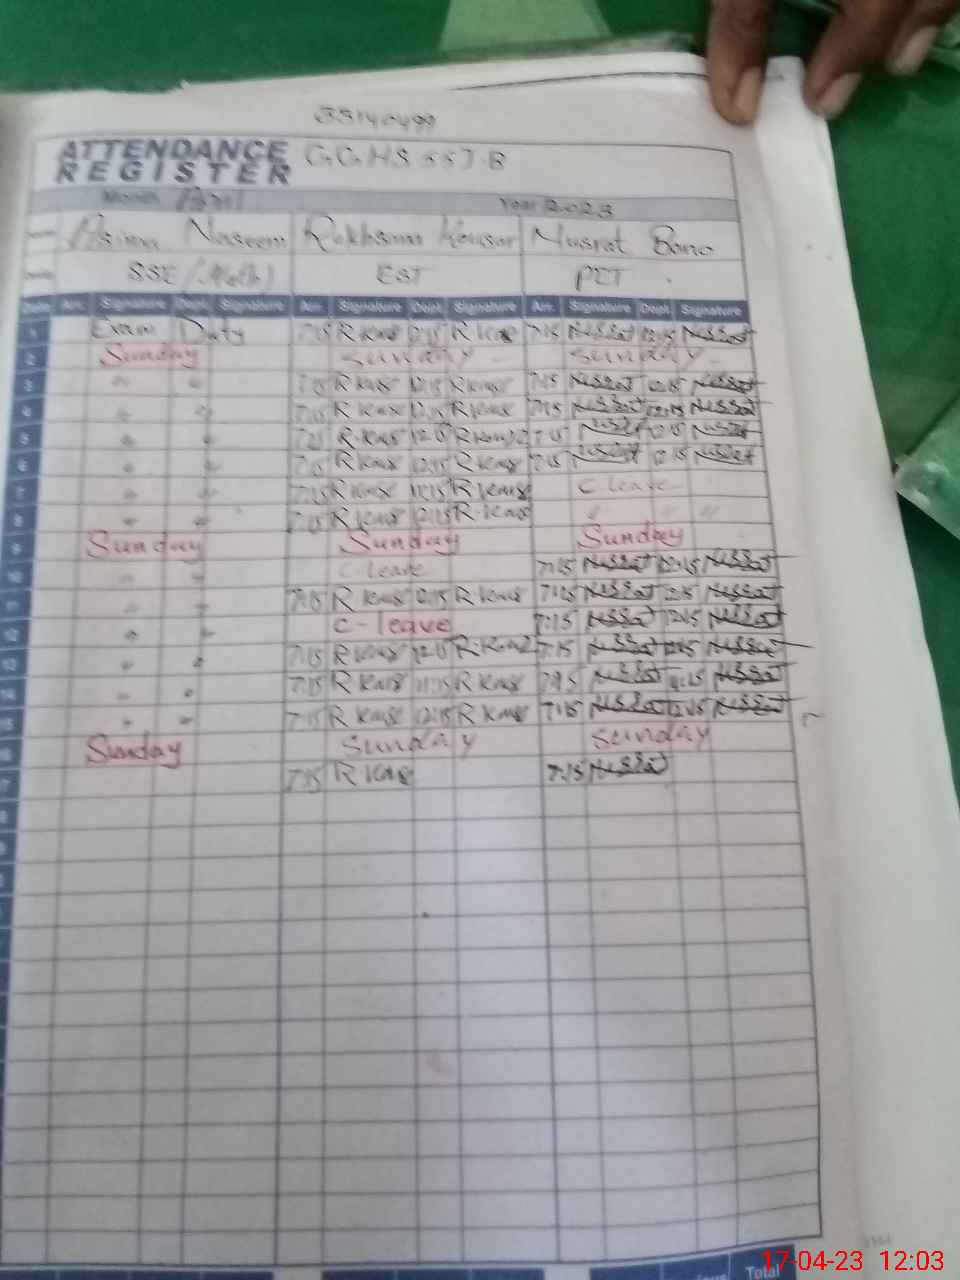 33140499
ATTENDANCE REGISTER G.G.H.S 55J-B
Month April Year 2023
Asima Naseem Rukhsana Kousar Nusrat Bano
SSE (Math) EST PET
Date Arr. Signature Dept. Signature Arr. Signature Dept. Signature Arr. Signature Dept. Signature
1 Exam Duty 7:15 R Kous 12:15 R Kous 7:15 Nussat 12:15 Nussat
2 Sunday Sunday Sunday
3 " " 7:15 R Kous 12:15 R Kous 7:15 Nussat 12:15 Nussat
4 " " 7:15 R Kous 12:15 R Kous 7:15 Nussat 12:15 Nussat
5 " " 7:15 R Kous 12:15 R Kous 7:15 Nussat 12:15 Nussat
6 " " 7:15 R Kous 12:15 R Kous 7:15 Nussat 12:15 Nussat
7 " " 7:15 R Kous 11:15 R Kous C leave
8 " " 7:15 R Kous 12:15 R Kous " " "
9 Sunday Sunday Sunday
10 " " C-leave 7:15 Nussat 12:15 Nussat
11 " " 7:15 R Kous 12:15 R Kous 7:15 Nussat 12:15 Nussat
12 " " C-leave 7:15 Nussat 12:15 Nussat
13 " " 7:15 R Kous 12:15 R Kous 7:15 Nussat 12:15 Nussat
14 " " 7:15 R Kous 11:15 R Kous Nussat 11:15 Nussat
15 " " 7:15 R Kous 12:15 R Kous 7:15 Nussat 12:15 Nussat
16 Sunday Sunday Sunday
17 7:15 R Kous 7:15 Nussat
Total
17-04-23 12:03